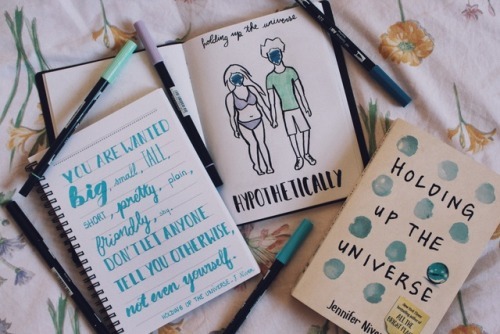 YOU ARE WANTED
big, small, TALL,
SHORT, pretty, plain,
friendly, shy.
DON'T LET ANYONE
TELL YOU OTHERWISE,
not even yourself.
HOLDING UP THE UNIVERSE - J. NIVEN
holding up the universe
HYPOTHETICALLY
HOLDING
UP THE
UNIVERSE
Jennifer Niven
ALL THE
BRIGHT PLACES